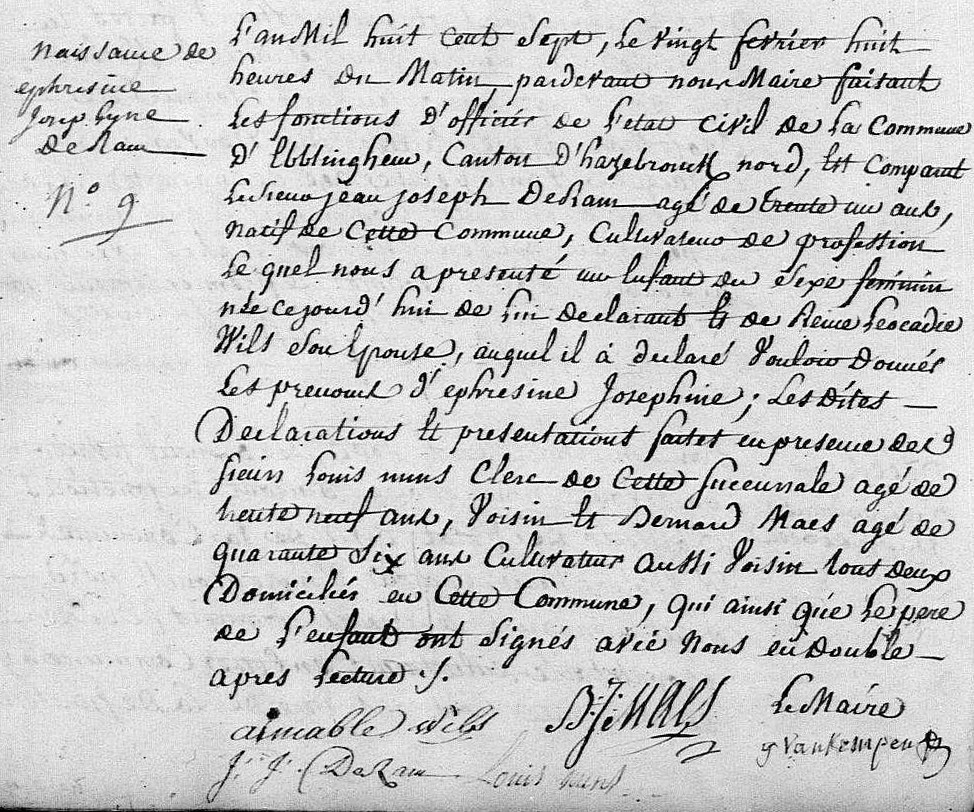 Naissance de
ephresine
Josephyne
DeRam
N.° 9
L'an Mil huit cent Sept, Le vingt fevrier huit
heures Du Matin, pardevant nous Maire faisant
Les fonctions d'officier de L'etat Civil de La Commune
d'Ebblinghem, Canton d'hazebrouck nord, Est Comparut
Le Sieur jean joseph DeRam agé de trente un ans,
natif de Cette Commune, Cultivateur de profession
Le quel nous a presenté un Enfant du Sexe feminin
née cejourd'hui de Lui Declarant Et de Reine Leocadie
Wils Son Epouse, auquel il à declaré Vouloir Donner
Les prenoms d'ephresine Josephine; Les Dites
Declarations Et presentations faites en presence des
sieurs Louis nuns Clerc de Cette Succursale agé de
trente neuf ans, Voisin Et Bernard Maes agé de
quarante Six ans Cultivateur aussi Voisin tous deux
Domiciliés en Cette Commune, qui ainsi que Le pere
de L'enfant ont Signés avec Nous en Double
apres Lecture ./.
aimable Wils B: J: MAES Le Maire
J: J: DeRam Louis nuns g VanKempen